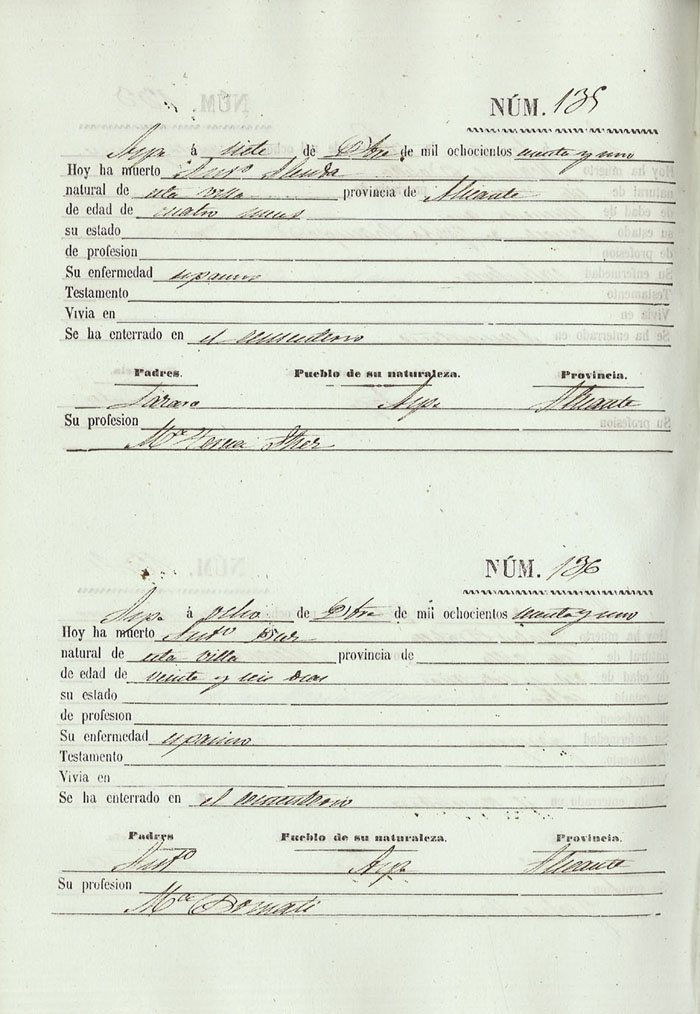 NÚM. 135
Aspe á siete de Obre de mil ochocientos cuarenta y uno
Hoy ha muerto
natural de esta villa provincia de Alicante
de edad de cuatro meses
su estado
de profesion
Su enfermedad espasmo
Testamento
Vivia en
Se ha enterrado en el cementerio
Padres. Pueblo de su naturaleza. Provincia.
Lazaro Aspe Alicante
Su profesion
Mª Teresa
NÚM. 136
Aspe á ocho de Obre de mil ochocientos cuarenta y uno
Hoy ha muerto Antº
natural de esta villa provincia de
de edad de veinte y seis dias
su estado
de profesion
Su enfermedad espasmo
Testamento
Vivia en
Se ha enterrado en el cementerio
Padres Pueblo de su naturaleza. Provincia.
Antº Aspe Alicante
Su profesion
Mª